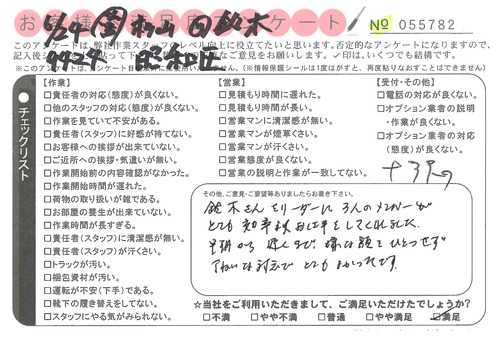 お客様 足度 ケート
№ 055782
6/24
このアンケートは、弊社作業スタッフのレベル向上に役立てたいと思います。否定的なアンケートになりますので、
記入後 をお願いします。✓印は、いくつでも結構です。
※このアンケート (※情報保護シールは1度はがすと、再度貼りなおすことはできません)
チェックリスト
【作業】
□責任者の対応(態度)が良くない。
□他のスタッフの対応(態度)が良くない。
□作業を見ていて不安がある。
□責任者(スタッフ)に好感が持てない。
□お客様への挨拶が出来ていない。
□ご近所への挨拶・気遣いが無い。
□作業開始前の内容確認がなかった。
□作業開始時間が遅れた。
□荷物の取り扱いが雑である。
□お部屋の養生が出来ていない。
□作業時間が長すぎる。
□責任者(スタッフ)に清潔感が無い。
□責任者(スタッフ)が汗くさい。
□トラックが汚い。
□梱包資材が汚い。
□運転が不安(下手)である。
□靴下の履き替えをしてない。
□スタッフにやる気がみられない。
【営業】
□見積もり時間に遅れた。
□見積もり時間が長い。
□営業マンに清潔感が無い。
□営業マンが煙草くさい。
□営業マンが汗くさい。
□営業態度が良くない。
□営業の説明と作業が一致してない。
【受付・その他】
□電話の対応が良くない。
□オプション業者の説明
・作業が良くない。
□オプション業者の対応
(態度)が良くない。
その他、ご意見・ご要望等ありましたらお書き下さい。
鈴木さんをリーダーに3人のメンバーが
とても 仕事をしてくれました。
早朝から遅くまで 嫌な顔をひとつせず
とてもよかったです。
☆当社をご利用いただきまして、ご満足いただけたでしょうか?
□不満 □やや不満 □普通 □やや満足 ☑満足